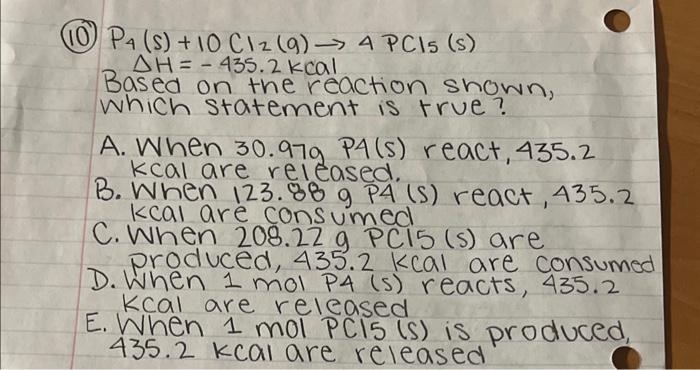 (10) P4 (s) + 10 Cl2 (g) → 4 PCl5 (s)
ΔH = - 435.2 kcal
Based on the reaction shown,
which statement is true?
A. When 30.97g P4 (s) react, 435.2
kcal are released.
B. When 123.88 g P4 (s) react, 435.2
kcal are consumed
C. When 208.22 g PCl5 (s) are
produced, 435.2 kcal are consumed
D. When 1 mol P4 (s) reacts, 435.2
kcal are released
E. When 1 mol PCl5 (s) is produced,
435.2 kcal are released